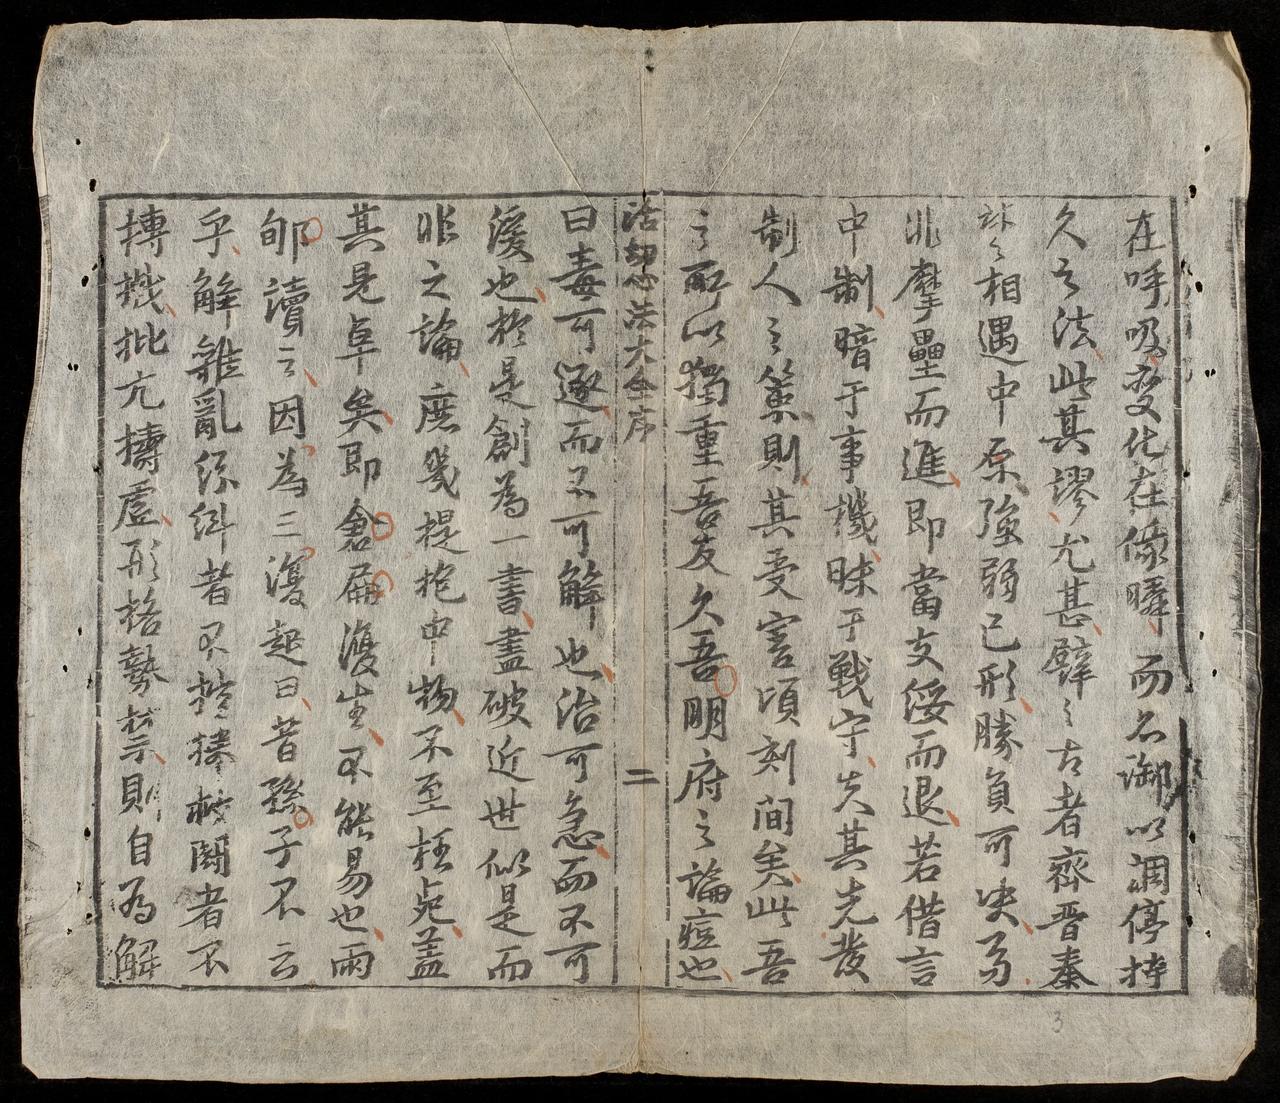 在呼吸変化在倐瞬而名御以調停持
久之法此其謬尤甚譬之古者齊晉秦
相遇中原強弱已形勝負可决
非摩壘而進即當支綏而退若借言
中制暗于事機昧于戦守失其先發
制人之策則其受害頃刻间矣此吾
之所以獨重吾友久吾明府之論痘也
活㓜心法大全序
二
曰毒可逐而不可解也治可急而不可
緩也於是創為一書盡破近世似是而
非之論庶幾提抱中物不至枉死盖
其見卓矣即倉扁復生不能易也雨
郇讀之因為三復起曰昔孫子不云
乎解雜亂紛糾者不控捲救鬪者不
搏撠批亢擣虛形格勢禁則自為解
3